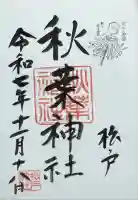 松戸
秋葉神社
令和七年十一月十日